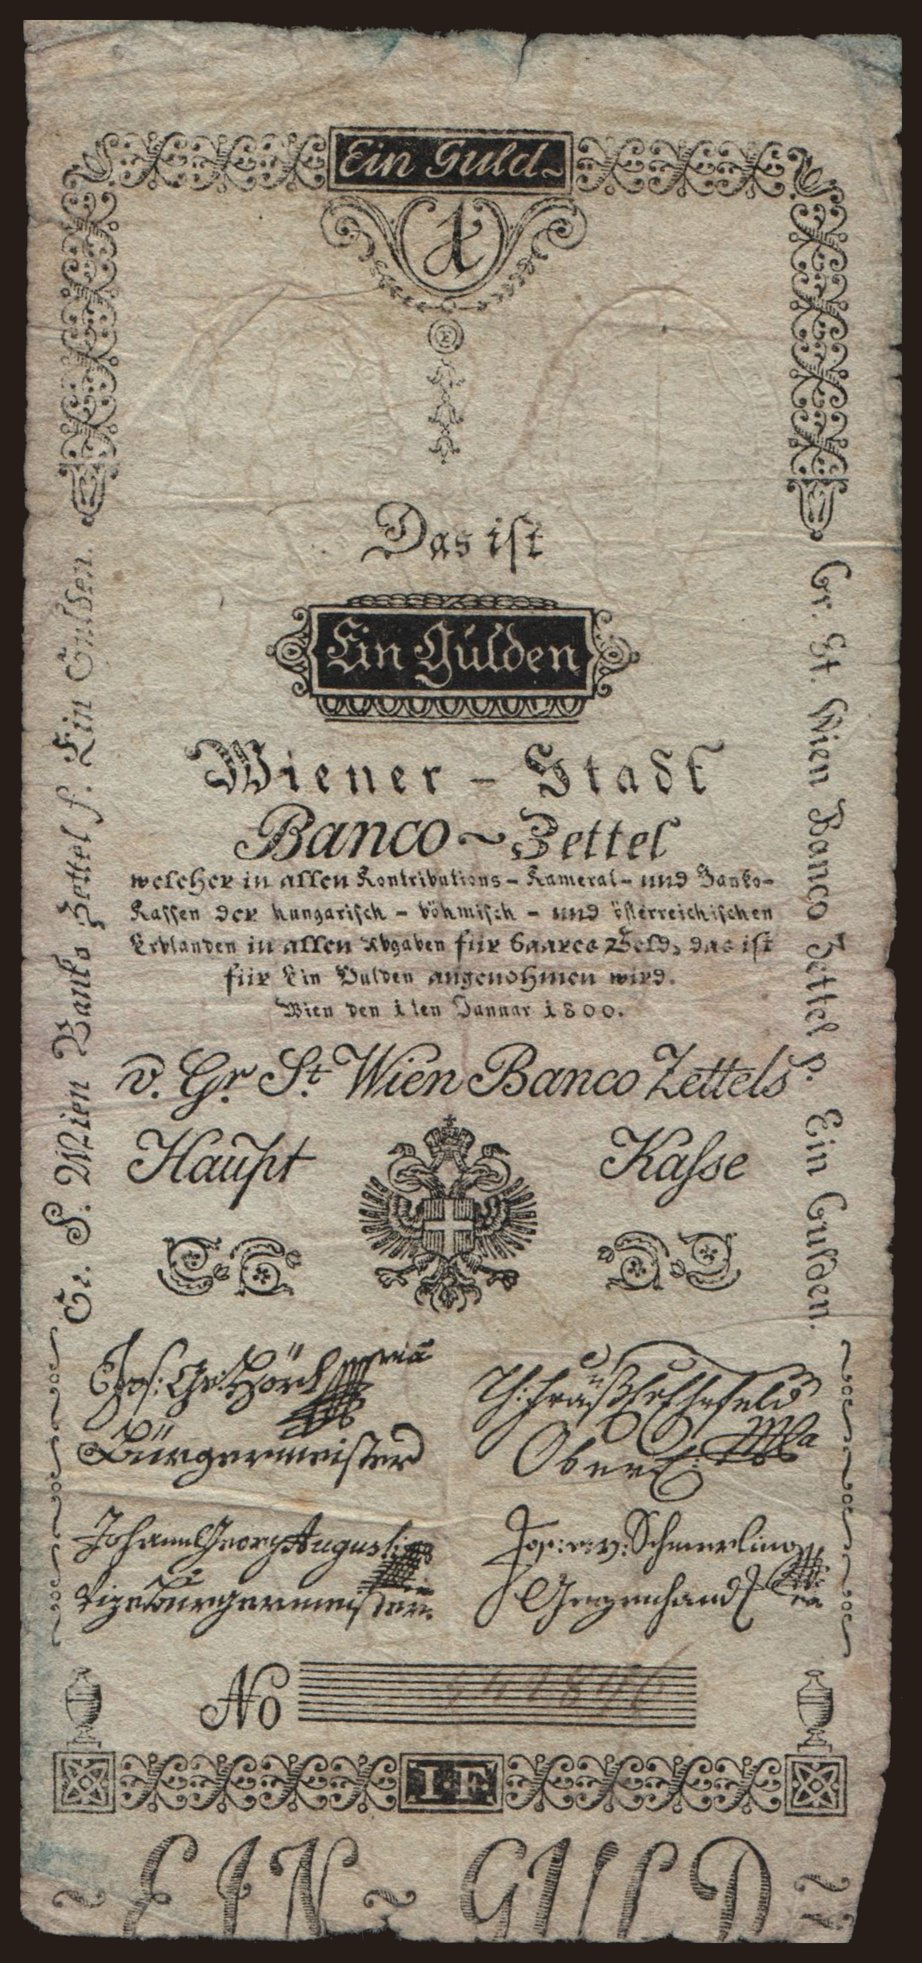 Ein Guld~
1
Das ist
Ein Gulden
Wiener - Stadt
Banco ~ Zettel
welcher in allen Kontributions - Kameral - und Banko-
Kassen der hungarisch - böhmisch - und österreichischen
Erblanden in allen Abgaben für baares Geld, das ist
für Ein Gulden angenohmen wird.
Wien den 1ten Januar 1800.
v. Gr. St. Wien Banco Zettels
Haupt Kasse
Gr. S. Wien Banko Zettel f. Ein Gulden.
Gr. St. Wien Banco Zettel p. Ein Gulden.
Jos: Gr: Hörl
Bürgermeister
Ober
Johann Georg Augusti
Vizebürgermeister
Jos: v: Schmerling
Gegenhand
No
I·F
~ EIN ~ GULD ~